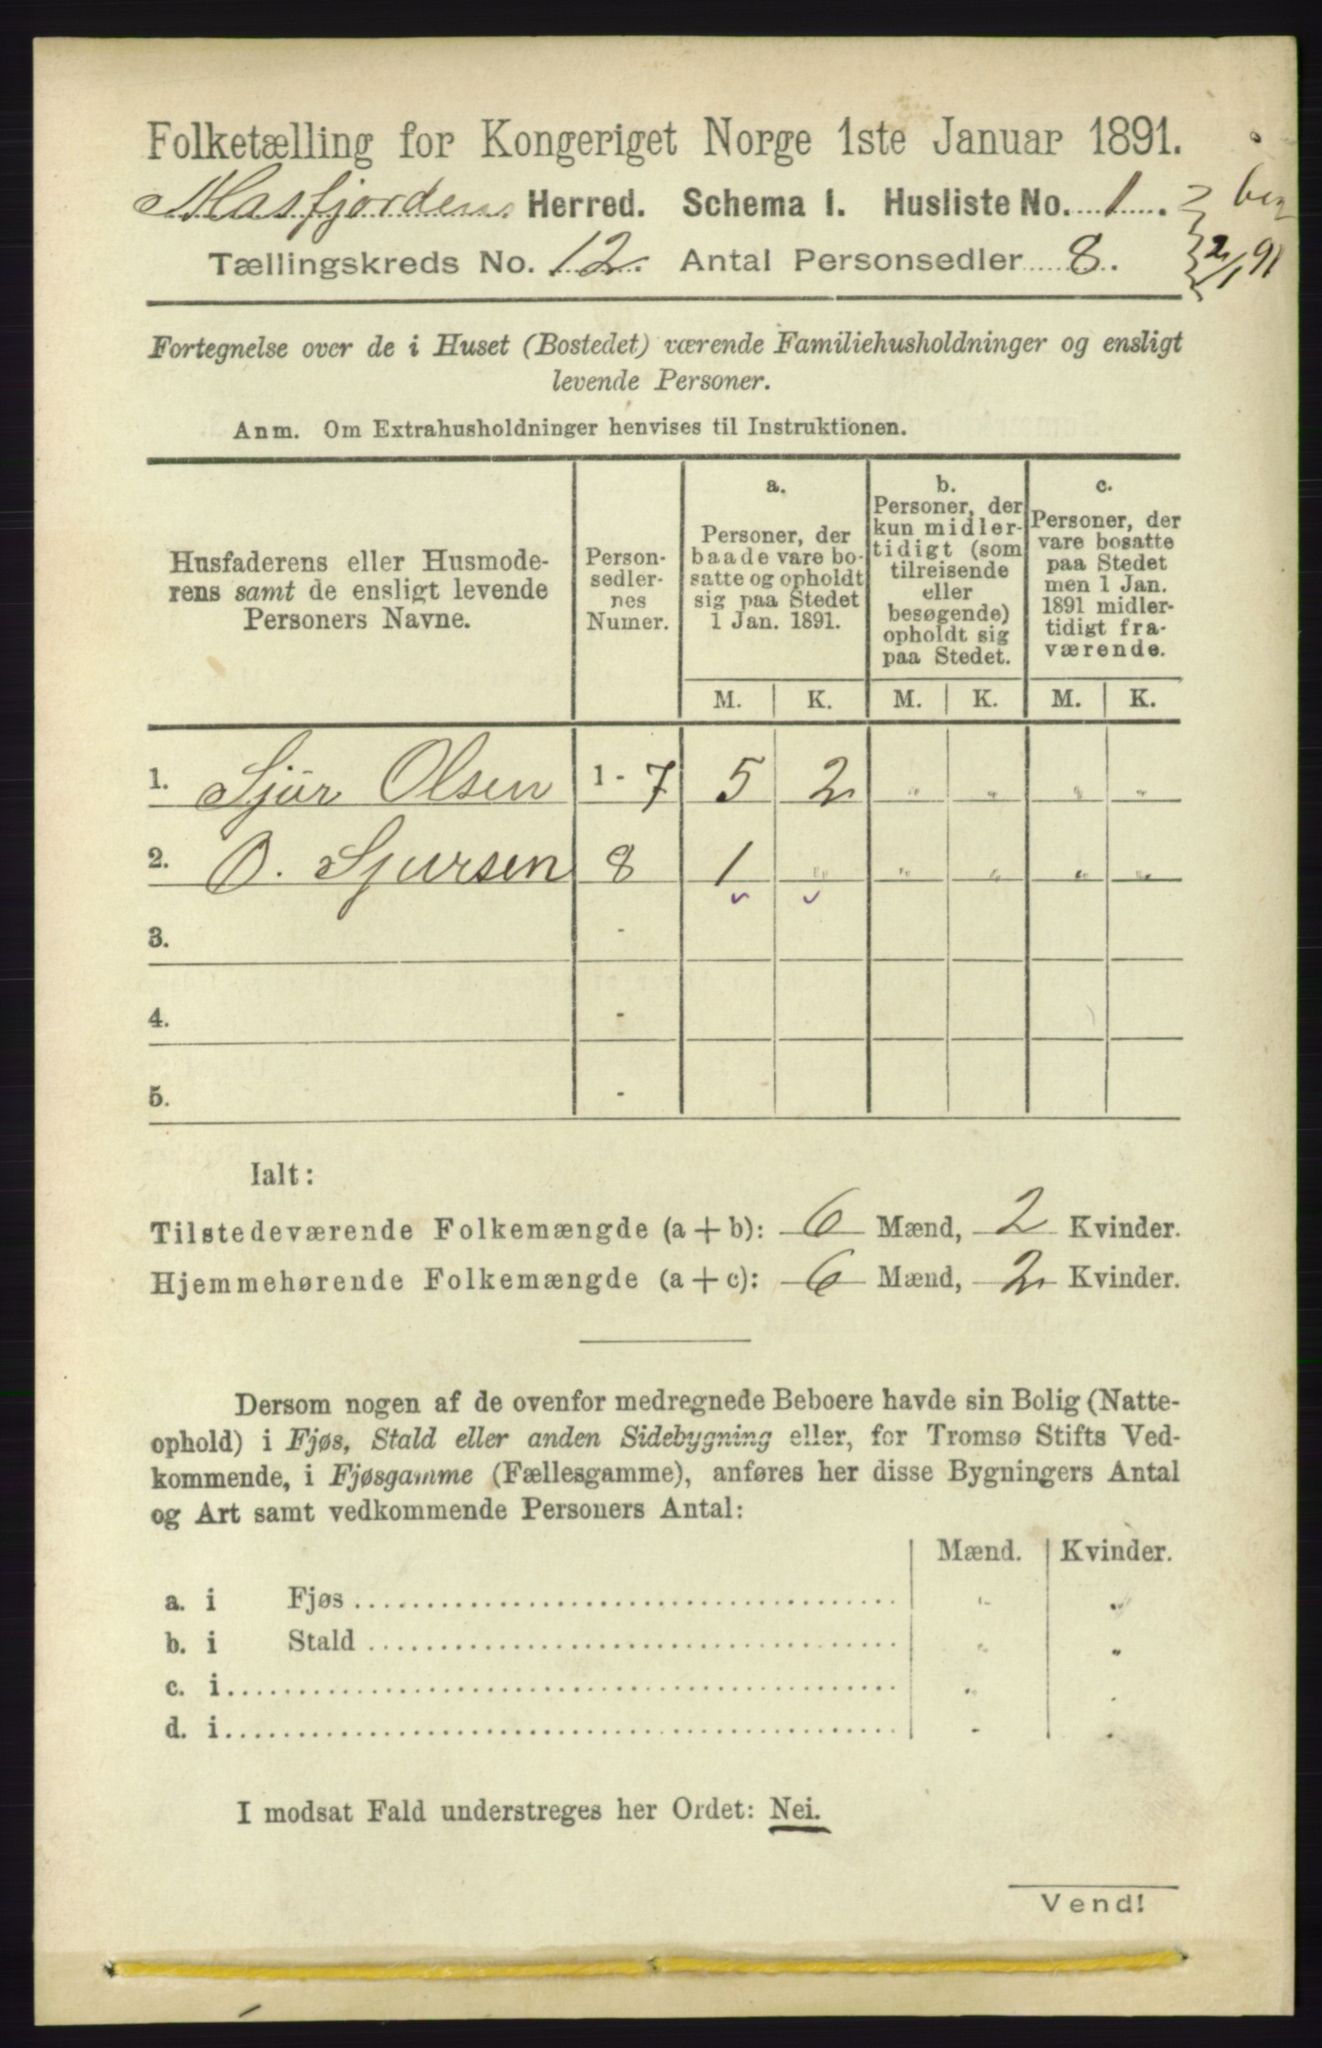 Folketælling for Kongeriget Norge 1ste Januar 1891.
Masfjordens Herred. Schema I. Husliste No. 1.
Tællingskreds No. 12. Antal Personsedler 8. 2/1 91
Fortegnelse over de i Huset (Bostedet) værende Familiehusholdninger og ensligt
levende Personer.
Anm. Om Extrahusholdninger henvises til Instruktionen.
Husfaderens eller Husmode-
rens samt de ensligt levende
Personers Navne.
Person-
sedler-
nes
Numer.
a.
Personer, der
baade vare bo-
satte og opholdt
sig paa Stedet
1 Jan. 1891.
b.
Personer, der
kun midler-
tidigt (som
tilreisende
eller
besøgende)
opholdt sig
paa Stedet.
c.
Personer, der
vare bosatte
paa Stedet
men 1 Jan.
1891 midler-
tidigt fra-
værende.
M. K. M. K. M. K.
1. Sjur Olsen 1 - 7 5 2 " " " "
2. O. Sjursen 8 1 " " " " "
3. -
4. -
5. -
Ialt:
Tilstedeværende Folkemængde (a + b): 6 Mænd, 2 Kvinder.
Hjemmehørende Folkemængde (a + c): 6 Mænd, 2 Kvinder.
Dersom nogen af de ovenfor medregnede Beboere havde sin Bolig (Natte-
ophold) i Fjøs, Stald eller anden Sidebygning eller, for Tromsø Stifts Ved-
kommende, i Fjøsgamme (Fællesgamme), anføres her disse Bygningers Antal
og Art samt vedkommende Personers Antal:
Mænd. Kvinder.
a. i Fjøs " "
b. i Stald " "
c. i " "
d. i " "
I modsat Fald understreges her Ordet: Nei.
Vend!